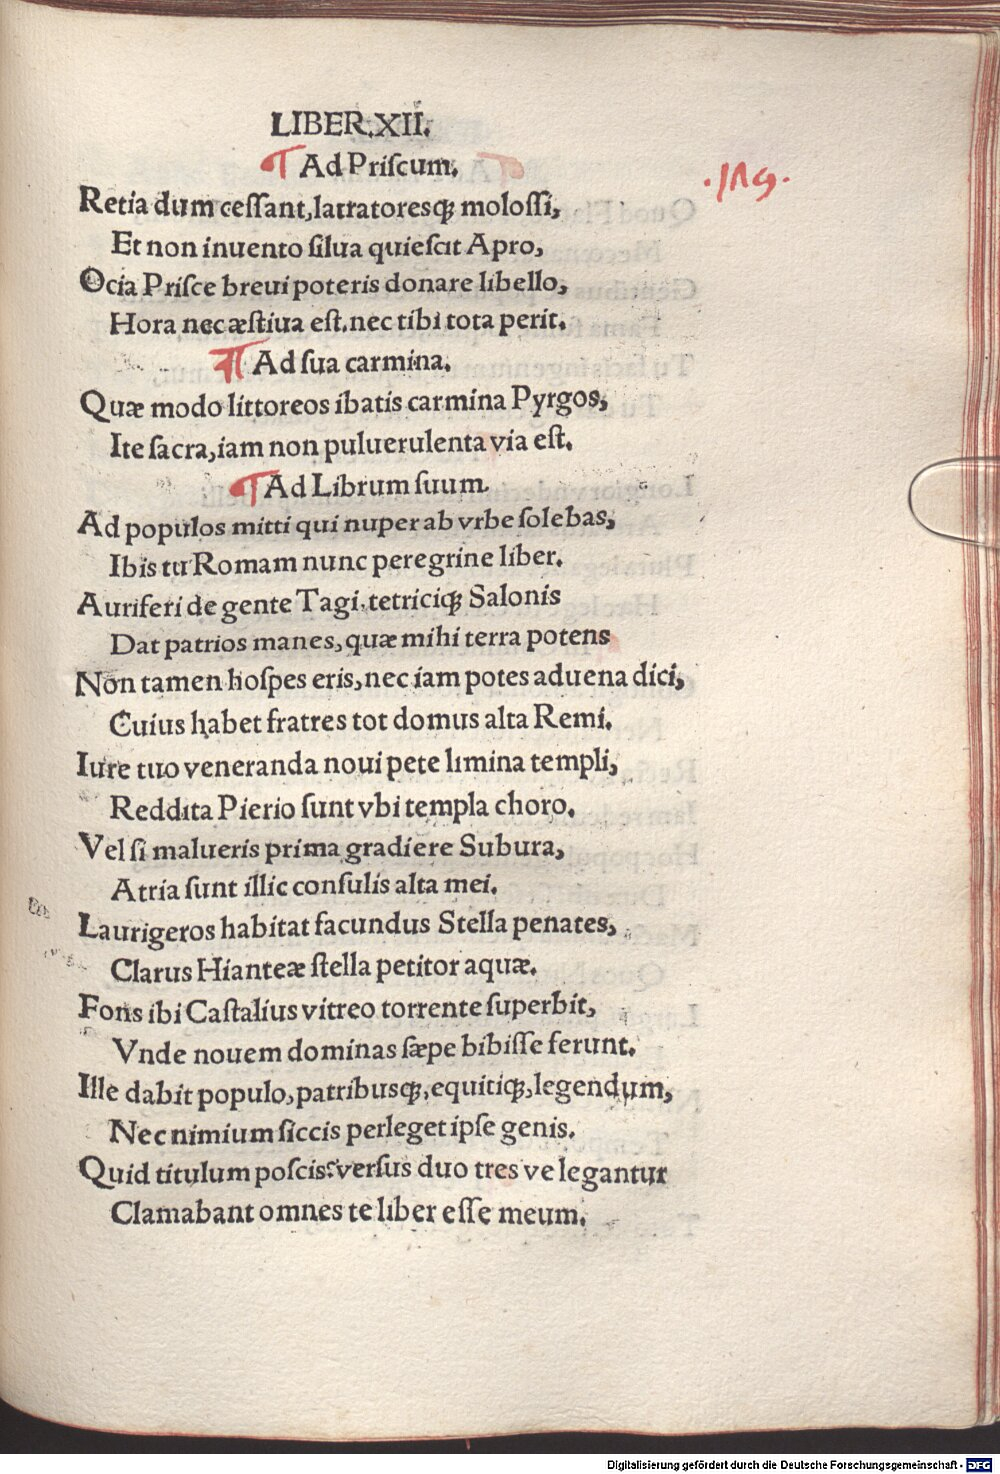 LIBER.XII.
Ad Priſcum.
.119.
Retia dum ceſſant,latratoresqꝫ moloſſi,
Et non inuento ſilua quieſcit Apro,
Ocia Priſce breui poteris donare libello,
Hora nec æſtiua eſt.nec tibi tota perit.
Ad ſua carmina.
Quæ modo littoreos ibatis carmina Pyrgos,
Ite ſacra,iam non puluerulenta via eſt.
Ad Librum ſuum.
Ad populos mitti qui nuper ab vrbe ſolebas,
Ibis tu Romam nunc peregrine liber.
Auriferi de gente Tagi.tetriciqꝫ Salonis
Dat patrios manes,quæ mihi terra potens
Non tamen hoſpes eris,nec iam potes aduena dici,
Cuius habet fratres tot domus alta Remi.
Iure tuo veneranda noui pete limina templi,
Reddita Pierio ſunt vbi templa choro.
Vel ſi malueris prima gradiere Subura,
Atria ſunt illic conſulis alta mei.
Laurigeros habitat facundus Stella penates,
Clarus Hianteæ ſtella petitor aquæ.
Fons ibi Caſtalius vitreo torrente ſuperbit,
Vnde nouem dominas ſæpe bibiſſe ferunt.
Ille dabit populo,patribusqꝫ,equitiqꝫ,legendum,
Nec nimium ſiccis perleget ipſe genis.
Quid titulum poſcis?verſus duo tres ve legantur
Clamabant omnes te liber eſſe meum.
Digitalisierung gefördert durch die Deutsche Forschungsgemeinschaft - DFG